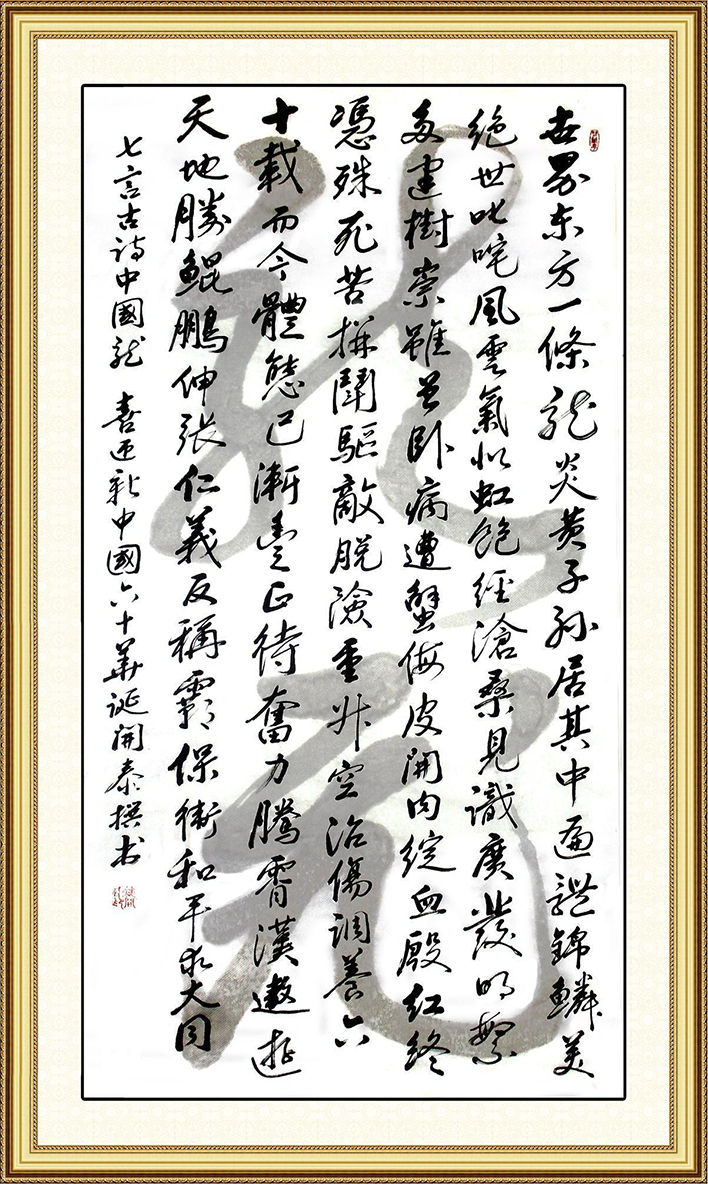 世界东方一條龍炎黄子孫居其中遍體錦鱗美
绝世叱咤風雲氣似虹飽經滄桑見識廣發明繁
多建樹崇雖曾卧病遭蟹侮皮開肉綻血殷紅終
憑殊死苦拼鬭驅敵脱險重升空治傷調養六
十載而今體態已漸豊正待奮力騰霄漢遨遊
天地勝鯤鵬伸張仁義反稱霸保衛和平求大同
七言古詩中國龍 喜迎新中國六十華誕開泰撰书